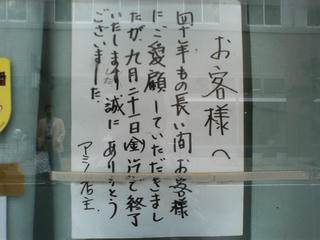 お客様へ
四十年もの長い間お客様
にご愛顧していただきまし
たが、九月二十一日(金)で終了
いたします。誠にありがとう
ございました。
アミラ店主